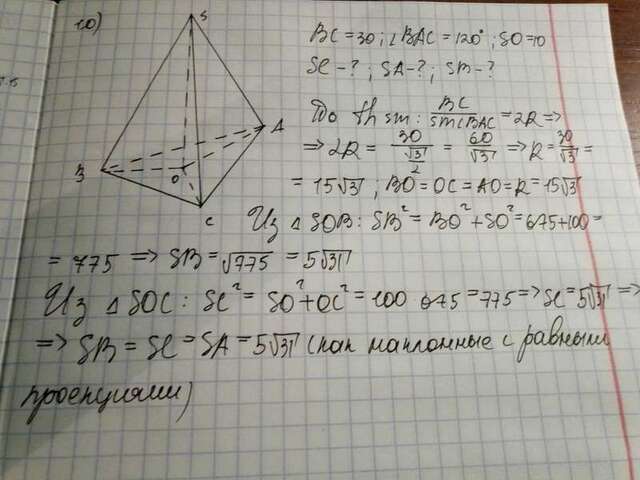 10)
S
A
B
O
C
BC = 30 ; ∠BAC = 120° ; SO = 10
SC - ? ; SA - ? ; SB - ?
По th sin : BC / sin∠BAC = 2R =>
=> 2R = 30 / (√3 / 2) = 60 / √3 => R = 30 / √3 =
= 15√3 ; BO = OC = AO = R = 15√3
Из △SOB : SB² = BO² + SO² = 675 + 100 =
= 775 => SB = √775 = 5√31
Из △SOC : SC² = SO² + OC² = 100 675 = 775 => SC = 5√31 =>
=> SB = SC = SA = 5√31 (как наклонные с равными
проекциями)